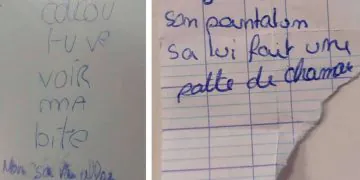 coucou
tu ve
voir
ma
bite
Non sa
son pountalon
sa lui fait une
patte de chamau